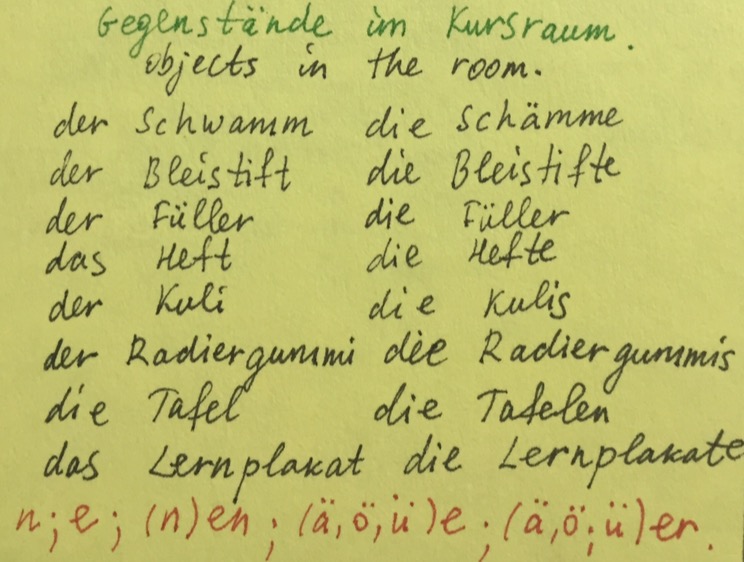 Gegenstände im Kursraum.
objects in the room.
der Schwamm die Schämme
der Bleistift die Bleistifte
der Füller die Füller
das Heft die Hefte
der Kuli die Kulis
der Radiergummi die Radiergummis
die Tafel die Tafelen
das Lernplakat die Lernplakate
n; e; (n)en; (ä, ö, ü)e; (ä, ö; ü)er.